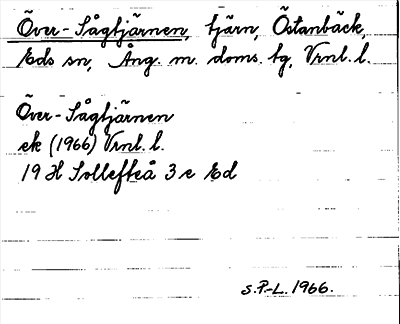 Över-Sågtjärnen, tjärn, Östanbäck,
Eds sn, Ång. m. doms. tg, Vrnl. l.
Över-Sågtjärnen
ek (1966) Vrnl. l.
19 H Sollefteå 3 e Ed
S.P.-L. 1966.